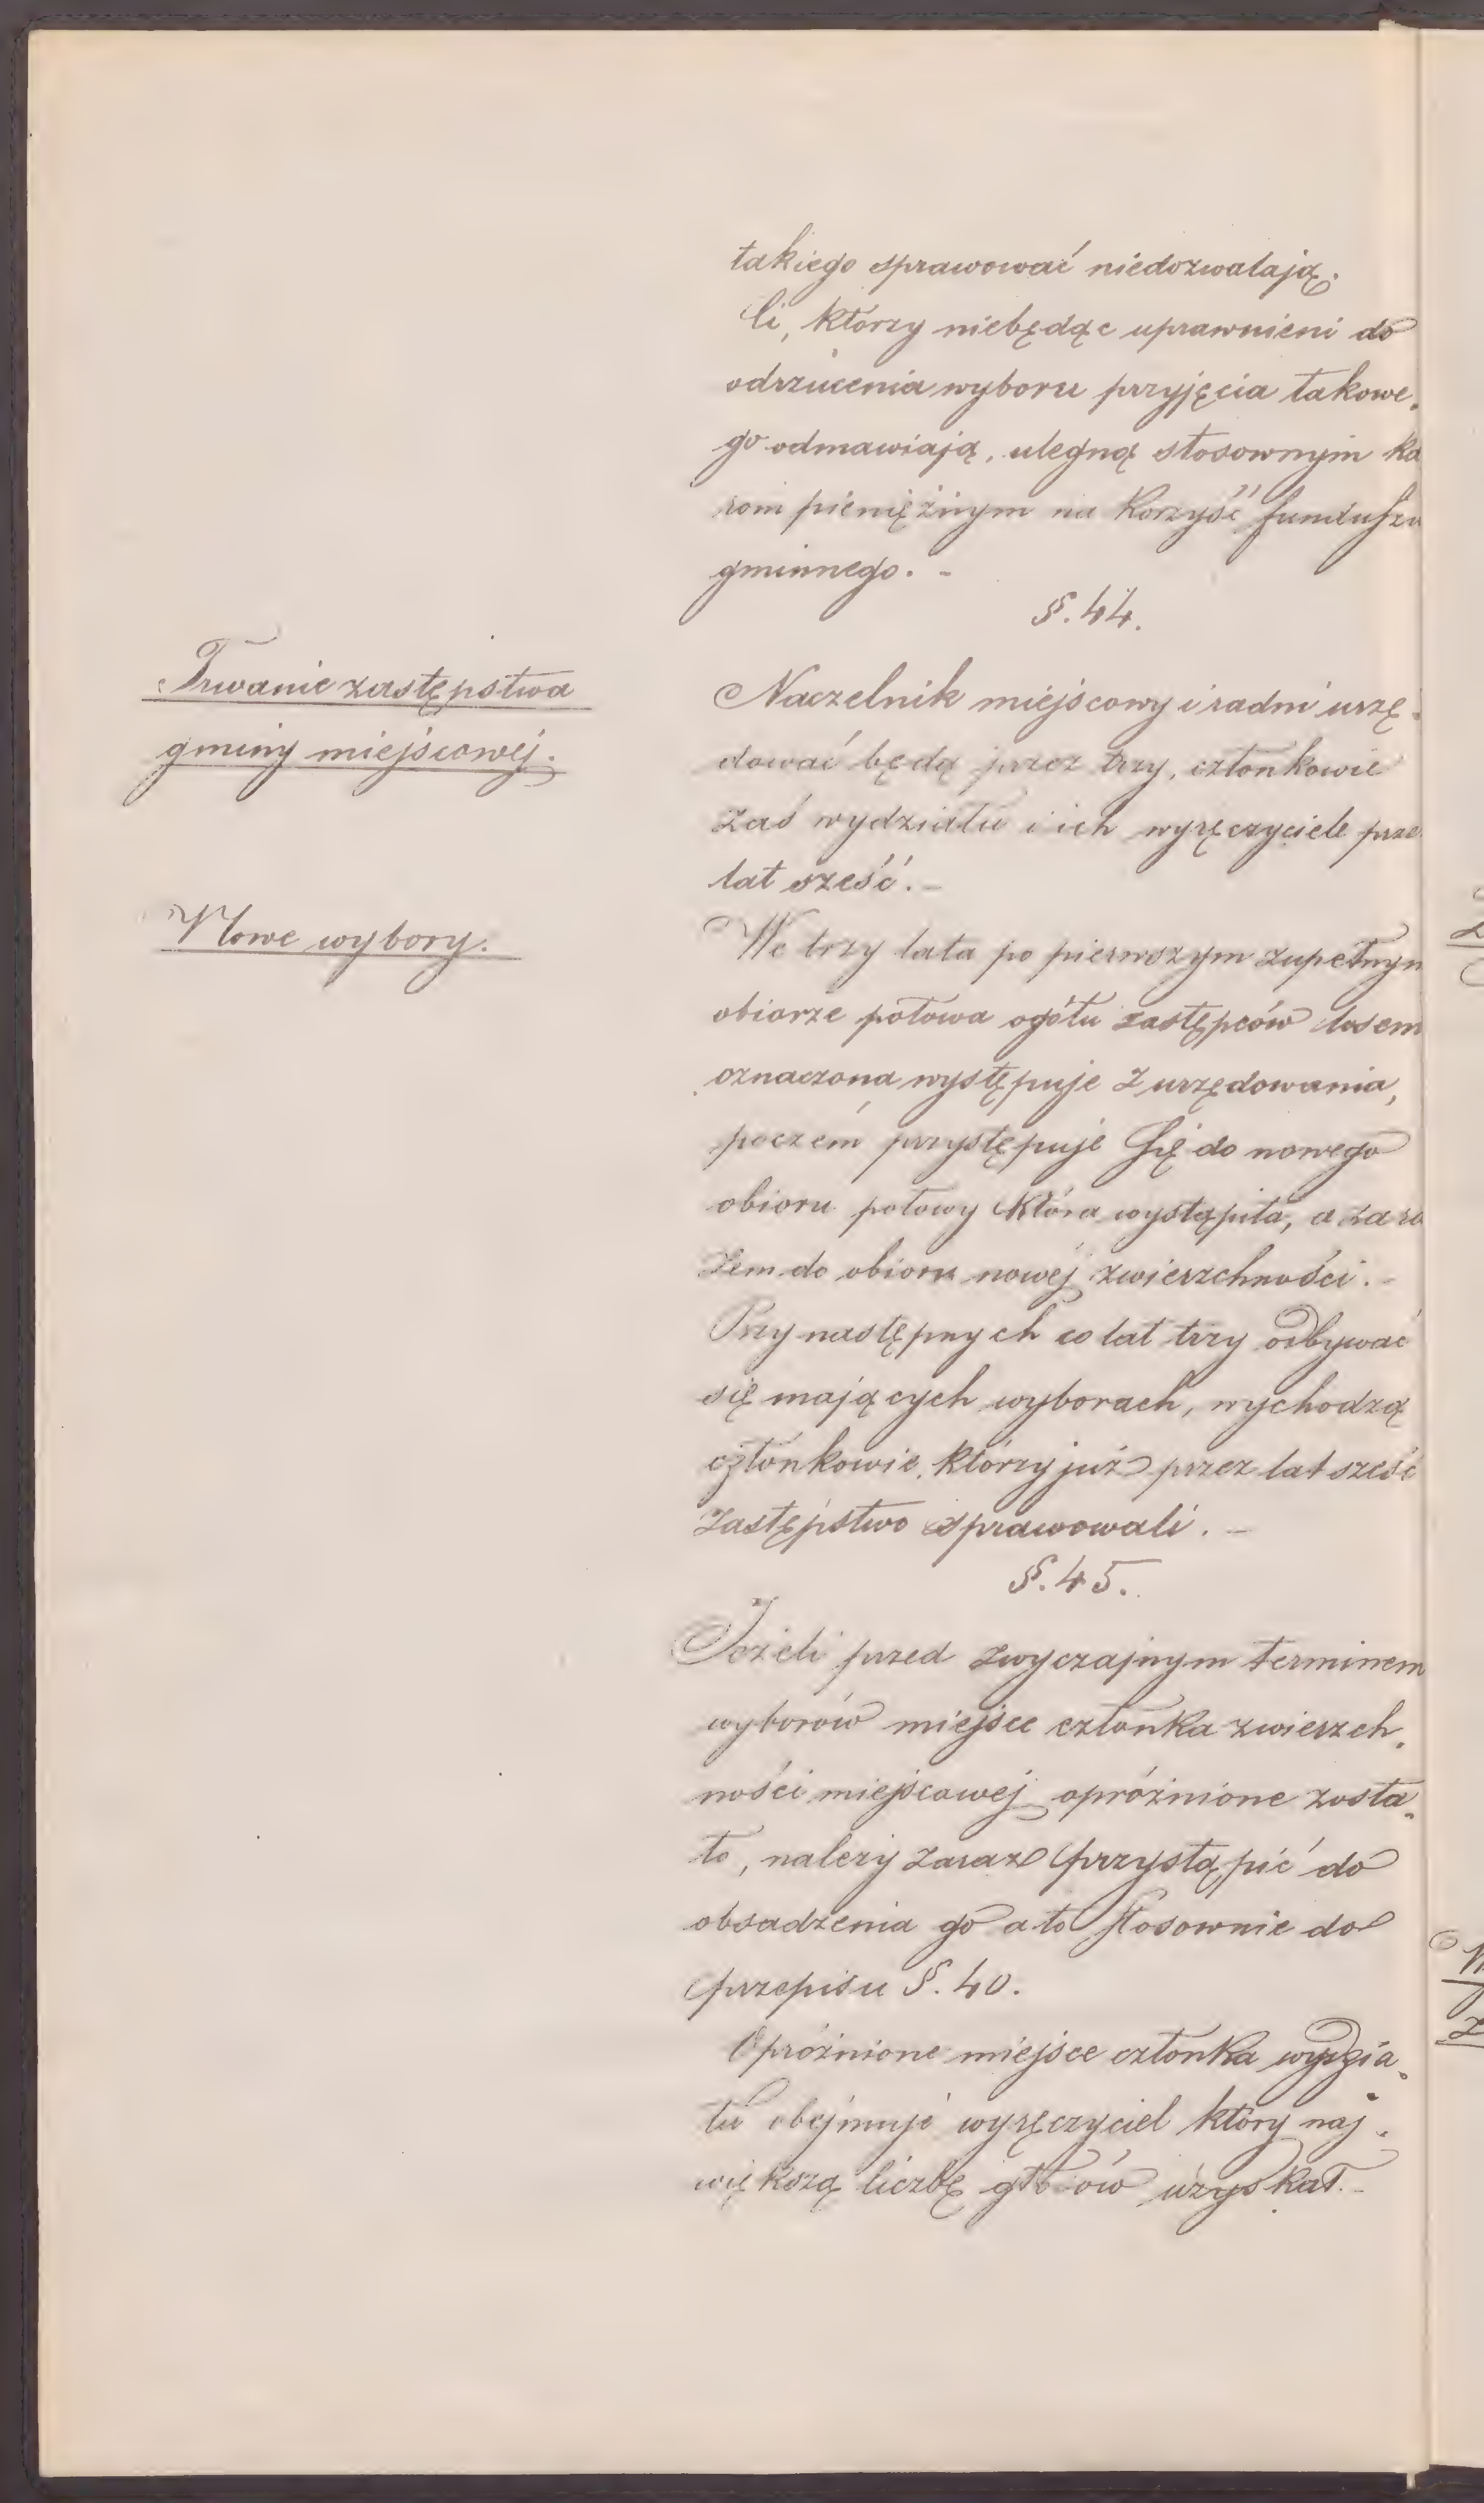 takiego sprawować niedozwalają.
Ci, którzy niebędąc uprawnieni do
odrzucenia wyboru przyjęcia takowe„
go odmawiają, ulegną stosownym ka
rom pieniężnym na korzyść funduszu
gminnego. –
§. 44.
Trwanie zastępstwa
gminy miejscowej.
Naczelnik miejscowy i radni urzę„
dować będą przez trzy, członkowie
zaś wydziału i ich wyręczyciele prze
lat sześć. –
Nowe wybory.
We trzy lata po pierwszym zupełnym
obiorze połowa ogółu zastępców losem
oznaczona występuje z urzędowania,
poczém przystępuje się do nowego
obioru połowy która wystąpiła, a zara
zem do obioru nowej zwierzchności. –
Przy następnych co lat trzy odbywać
się mających wyborach, wychodzą
członkowie, którzy już przez lat sześć
zastępstwo sprawowali. –
§. 45.
Jeżeli przed zwyczajnym terminem
wyborów miejsce członka zwierzch„
ności miejscowej opróżnione zosta„
ło, należy zaraz przystąpić do
obsadzenia go a to stosownie do
przepisu §. 40.
Opróżnione miejsce członka wydzia„
łu obejmuje wyręczyciel który naj„
większą liczbę głosów uzyskał. –